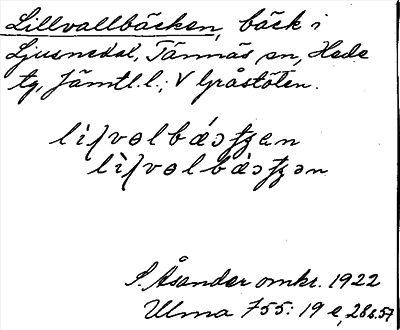 Lillvallbäcken, bäck i
Ljusnedal, Tännäs sn, Hede
tg, Jämtl. l.; V Gråstöten.
S. Åsander omkr. 1922
Ulma 755: 19 e, 28.6.57